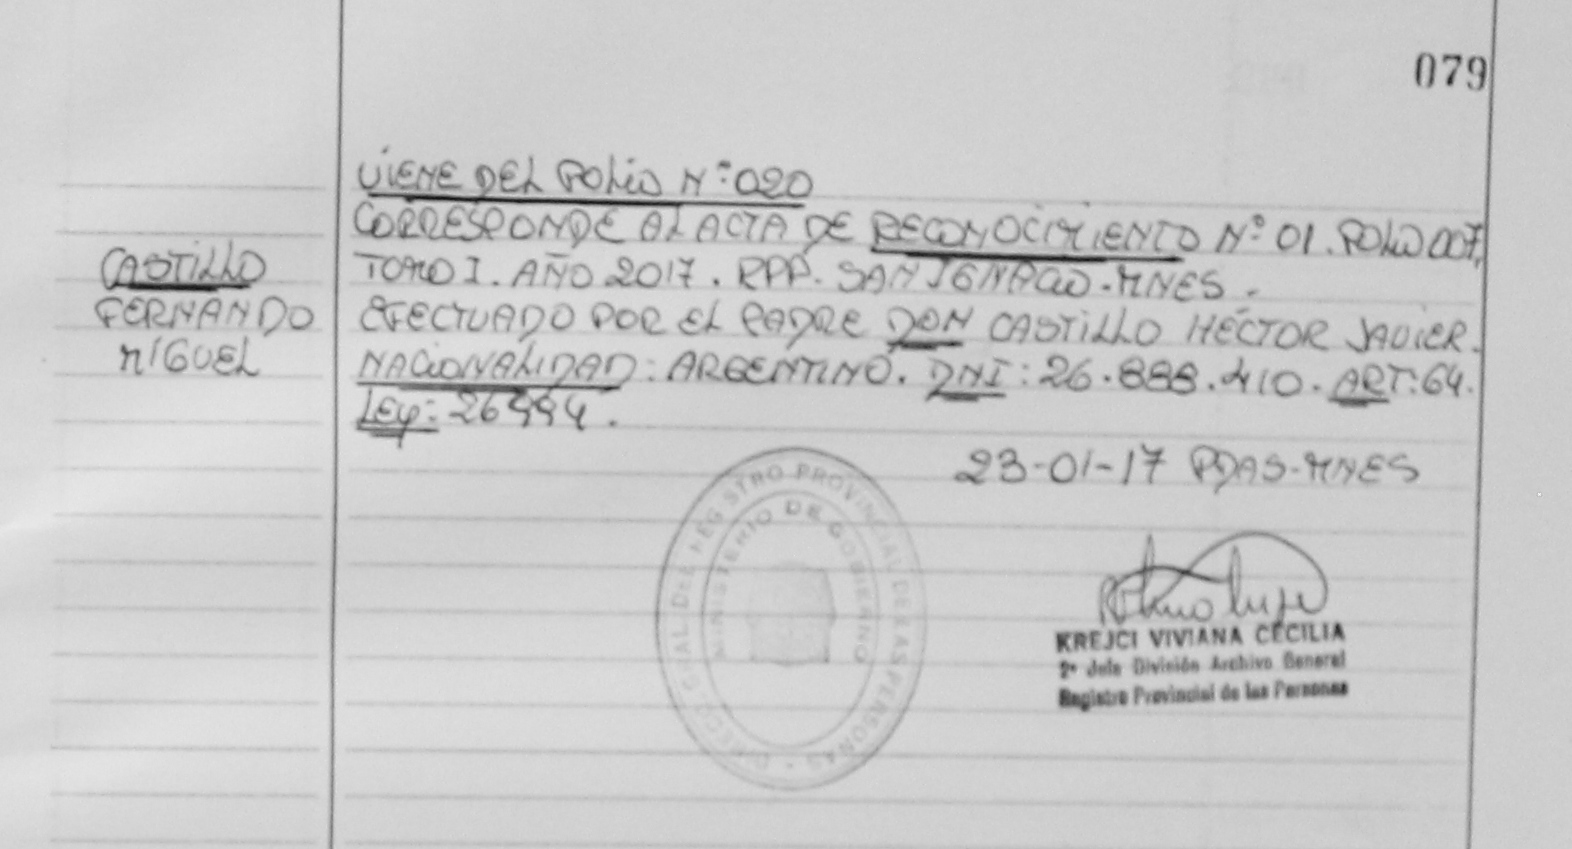 079
VIENE DEL FOLIO N°: 020
CORRESPONDE AL ACTA DE RECONOCIMIENTO N° 01. FOLIO 007,
CASTILLO
TOMO I. AÑO 2017. RPP. SAN IGNACIO - MNES -
FERNANDO
EFECTUADO POR EL PADRE DON CASTILLO HÉCTOR JAVIER.
MIGUEL
NACIONALIDAD: ARGENTINO. DNI: 26.888.410. ART: 64.
LEY: 26994.
23-01-17 PDAS-MNES
DIRECC GRAL DEL REGISTRO PROVINCIAL DE LAS PERSONAS
MINISTERIO DE GOBIERNO
KREJCI VIVIANA CECILIA
2ª Jefa División Archivo General
Registro Provincial de las Personas